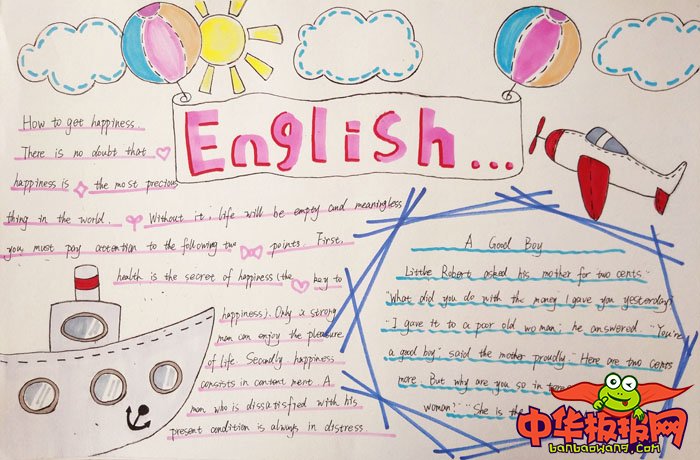 English...
How to get happiness..
There is no doubt that
happiness is the most precious
thing in the world. Without it, life will be empty and meaningless
you must pay attention to the following two points. First,
health is the secret of happiness (the key to
happiness). Only a strong
man can enjoy the pleasure
of life. Secondly happiness
consists in content ment. A
man who is dissatisfied with his
present condition is always in distress.
A Good Boy
Little Robert asked his mother for two cents.
"What did you do with the money I gave you yesterday?
"I gave it to a poor old woman," he answered. "You're
a good boy" said the mother proudly. "Here are two cents
more. But why are you so in
woman?" "She is the
中华板报网
banbaowang.com